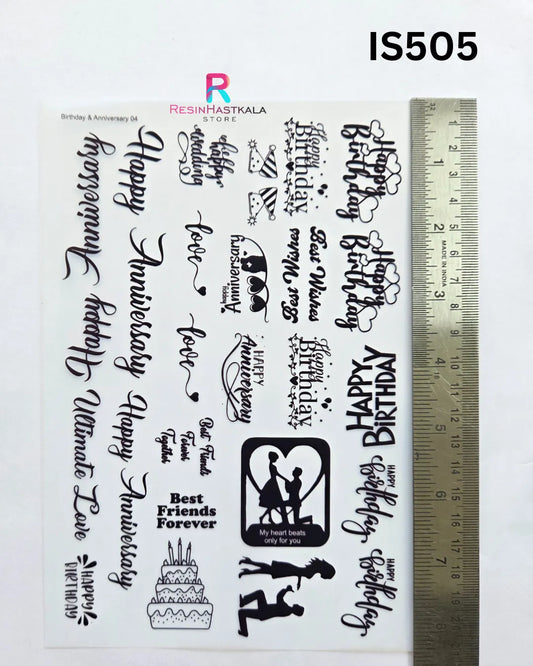 IS505
RESINHASTKALA
STORE
Birthday & Anniversary 04
Happy Anniversary
Happy Anniversary
Happy
Ultimate Love
Happy Anniversary
HAPPY
BIRTHDAY
happy
wedding
love
love
Best Friends
Forever
Together
Best
Friends
Forever
Happy
Birthday
Happy
Anniversary
Best Wishes
Best Wishes
HAPPY
Anniversary
Happy
Birthday
My heart beats
only for you
Happy
Birthday
Happy
Birthday
HAPPY
BIRTHDAY
HAPPY
birthday
HAPPY
birthday
32
1
2
3
4
5
6
7
MADE IN INDIA
1
2
3
4
5
6
7
8
9
10
11
12
13
14
15
16
17
18
19
20